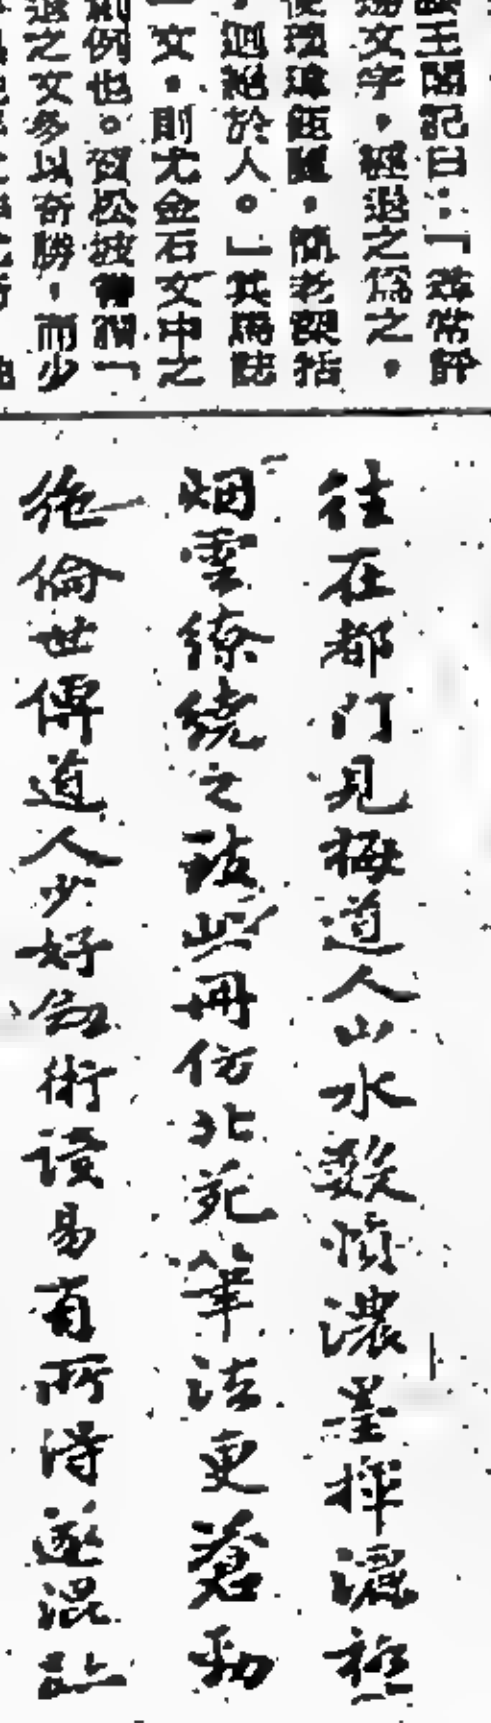 王閣記曰：「尋常評
文字，經退之爲之，
簡老深括
迥絕於人。」其爲誌
一文，則尤金石文中之
例也。賀松坡
退之文多以奇勝，而少
往在都門見梅道人山水數幀濃墨揮灑極
烟雲繚繞之致此冊仿北苑筆法更蒼勁
絶倫世傳道人少好劍術讀易有所得遂混跡